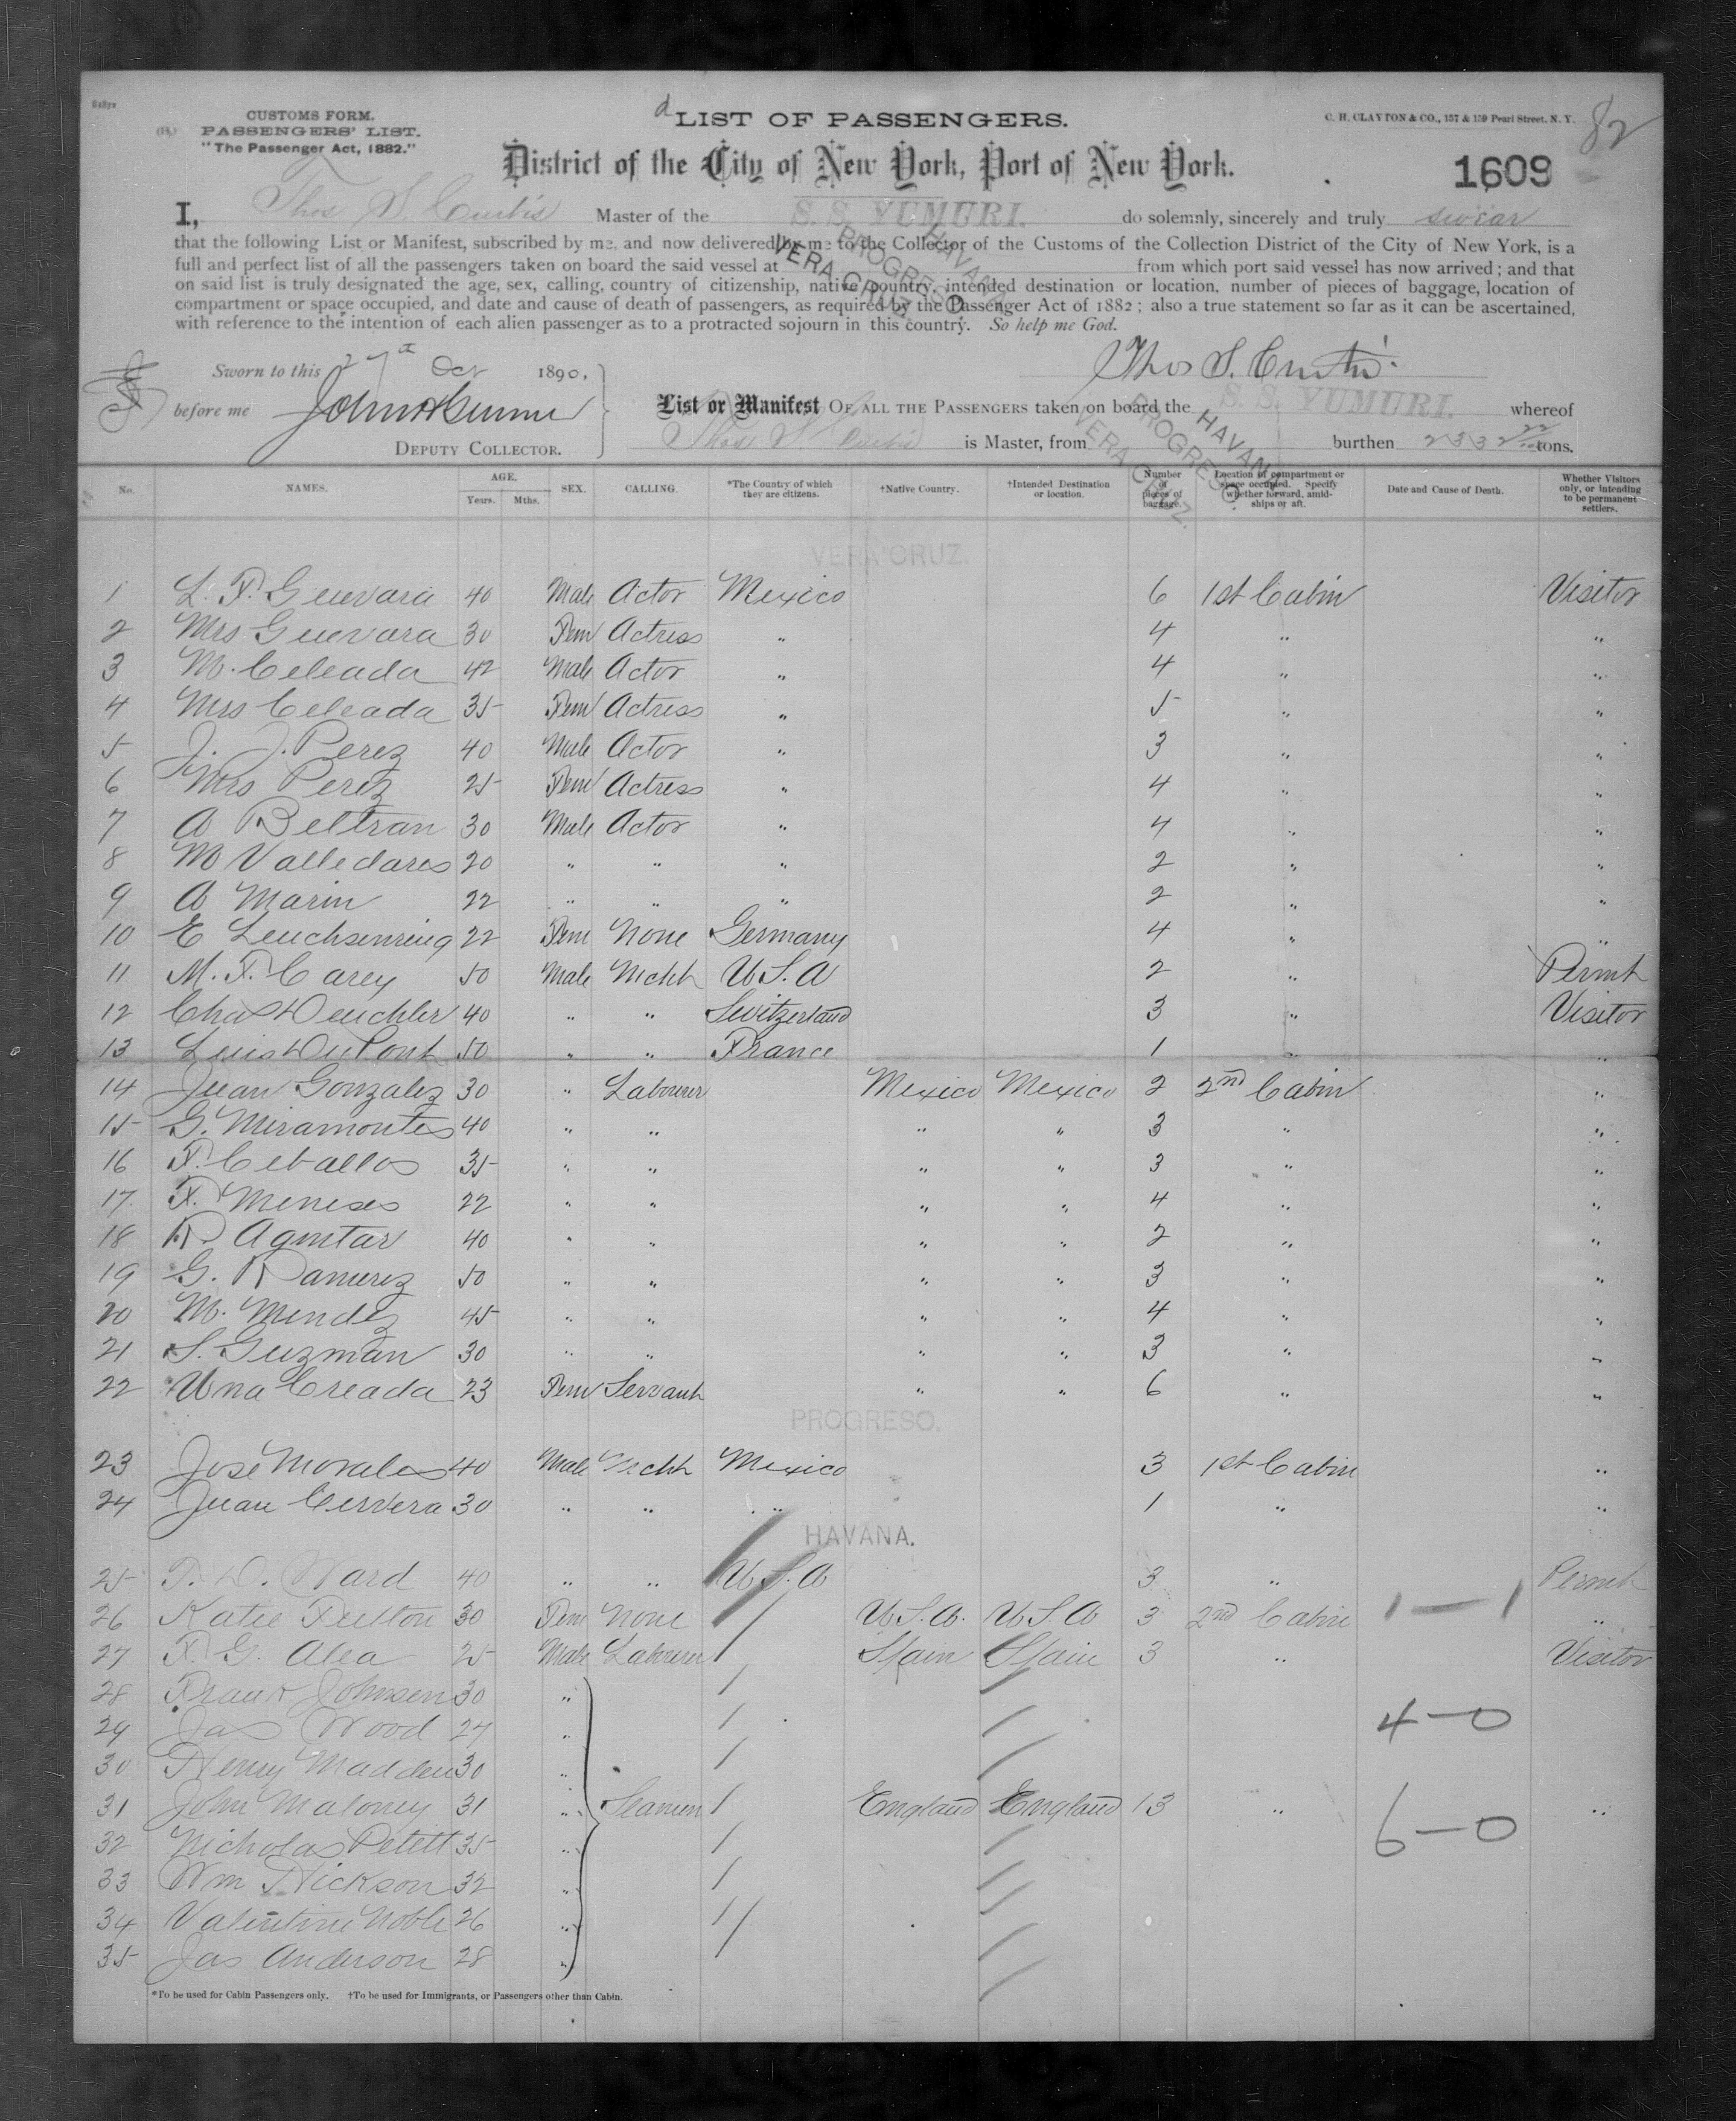 CUSTOMS FORM.
PASSENGERS' LIST.
"The Passenger Act, 1882."
LIST OF PASSENGERS.
C. H. CLAYTON & CO., 157 & 159 Pearl Street, N. Y.
82
District of the City of New York, Port of New York.
1609
I, Thos S. Curtis Master of the S. S. YUMURI. do solemnly, sincerely and truly swear
that the following List or Manifest, subscribed by me, and now delivered by me to the Collector of the Customs of the Collection District of the City of New York, is a
full and perfect list of all the passengers taken on board the said vessel at VERA CRUZ. PROGRESO. HAVANA from which port said vessel has now arrived; and that
on said list is truly designated the age, sex, calling, country of citizenship, native country, intended destination or location, number of pieces of baggage, location of
compartment or space occupied, and date and cause of death of passengers, as required by the Passenger Act of 1882; also a true statement so far as it can be ascertained,
with reference to the intention of each alien passenger as to a protracted sojourn in this country. So help me God.
Sworn to this 27th Oct 1890,
Thos S. Curtis
before me
List or Manifest OF ALL THE PASSENGERS taken on board the S. S. YUMURI. whereof
DEPUTY COLLECTOR.
Thos S. Curtis is Master, from VERA CRUZ. PROGRESO. HAVANA burthen 2332 22/100 tons.
No. NAMES. AGE. Years. Mths. SEX. CALLING. *The Country of which they are citizens. †Native Country. †Intended Destination or location. Number of pieces of baggage. Location of compartment or space occupied. Specify whether forward, amidships or aft. Date and Cause of Death. Whether Visitors only, or intending to be permanent settlers.
VERA CRUZ.
1 L. F. Guevara 40 Male Actor Mexico 6 1st Cabin Visitor
2 Mrs Guevara 30 Fem Actress " 4 " "
3 M. Celeada 42 Male Actor " 4 " "
4 Mrs Celeada 35 Fem Actress " 5 " "
5 J. J. Perez 40 Male Actor " 3 " "
6 Mrs Perez 25 Fem Actress " 4 " "
7 A Beltran 30 Male Actor " 4 " "
8 M Valledares 20 " " " 2 " "
9 A Marin 22 " " " 2 " "
10 E Leuchsenring 22 Fem None Germany 4 " "
11 M. F. Carey 50 Male Mcht U.S.A 2 " Permt
12 Chas Deuchler 40 " " Switzerland 3 " Visitor
13 Luis DuPont 50 " " France 1 " "
14 Juan Gonzalez 30 " Labourer Mexico Mexico 2 2nd Cabin "
15 G. Miramontes 40 " " " " 3 " "
16 F. Ceballos 35 " " " " 3 " "
17 F. Meneses 22 " " " " 4 " "
18 R Aguitar 40 " " " " 2 " "
19 G. Ramerez 50 " " " " 3 " "
20 M. Mendez 45 " " " " 4 " "
21 S. Guzman 30 " " " " 3 " "
22 Una Creada 23 Fem Servant " " 6 " "
PROGRESO.
23 Jose Morales 40 Male Mcht Mexico 3 1st Cabin "
24 Juan Cervera 30 " " " 1 " "
HAVANA.
25 F. D. Ward 40 " " U.S.A 3 " Permt
26 Katie Fulton 30 Fem None U.S.A. U.S.A 3 2nd Cabin 1—1 "
27 F. G. Alea 25 Male Labourer Spain Spain 3 " Visitor
28 Frank Johnsen 30 "
29 Jas Wood 27 " 4—0
30 Henry Madden 30 "
31 John Maloney 31 " Seamen England England 13 " "
32 Nicholas Petett 35 " 6—0
33 Wm Hickson 32 "
34 Valentine Noble 26 "
35 Jas Anderson 28 "
*To be used for Cabin Passengers only. †To be used for Immigrants, or Passengers other than Cabin.